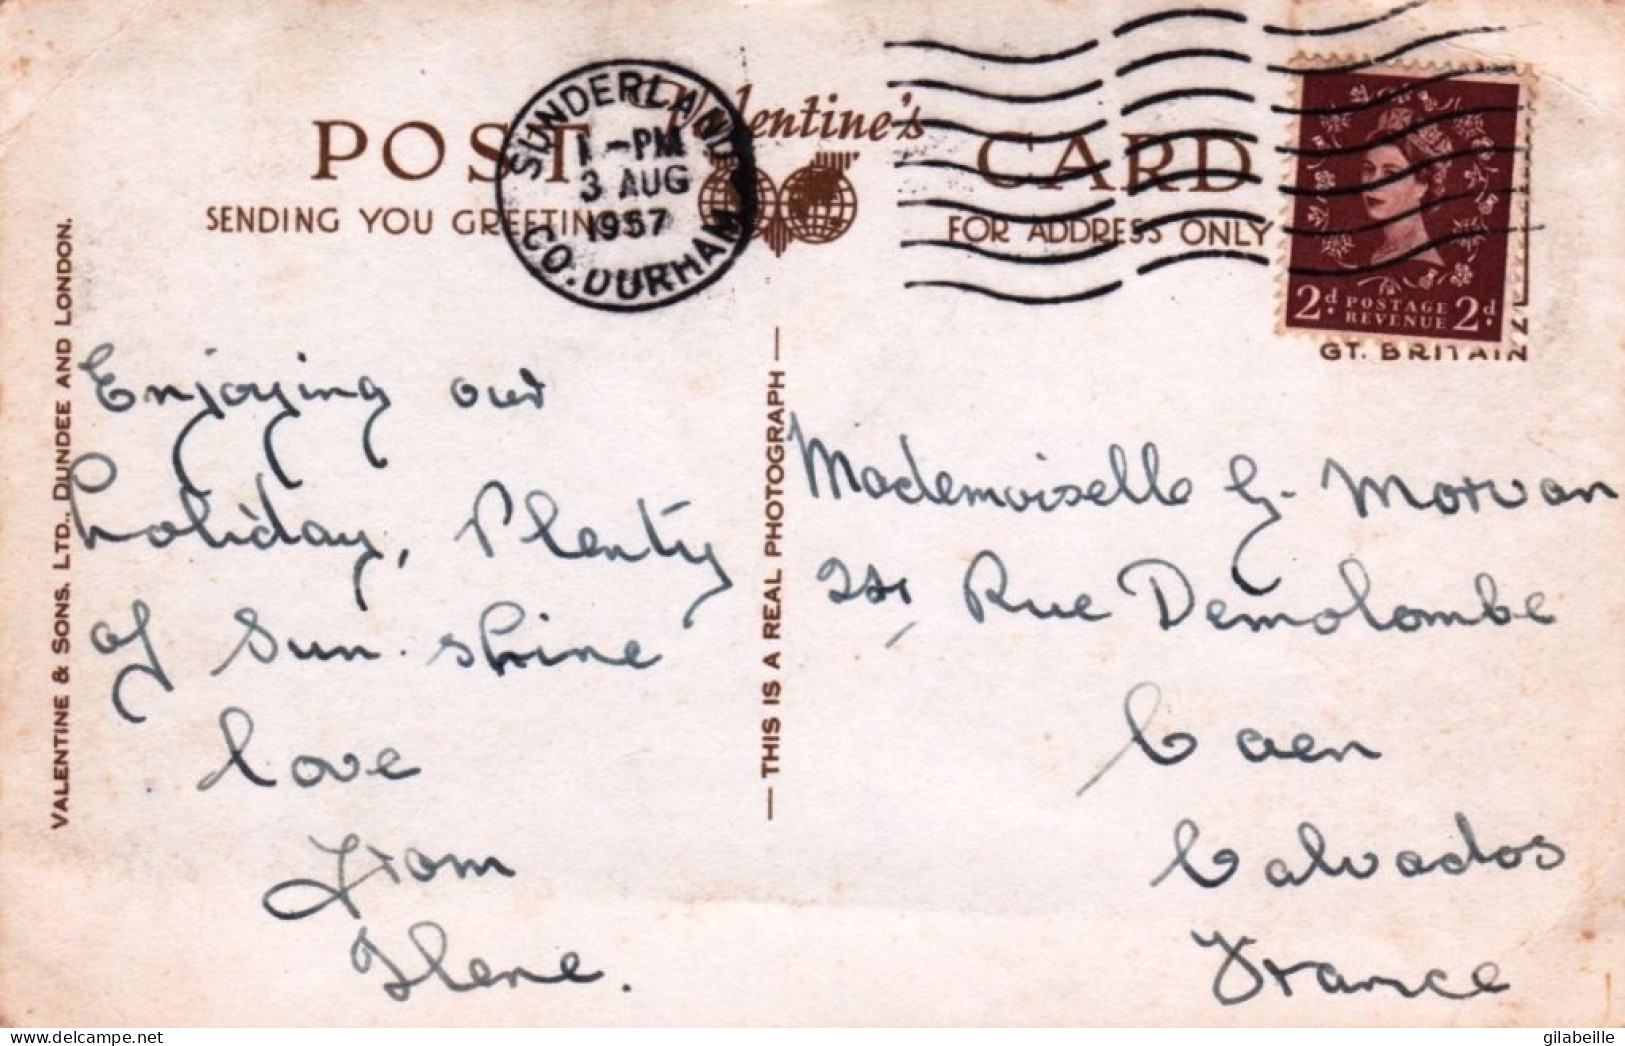 POST Valentine's CARD
SENDING YOU GREETINGS
FOR ADDRESS ONLY
SUNDERLAND
1-PM
3 AUG
1957
CO. DURHAM
2d. POSTAGE REVENUE 2d.
GT. BRITAIN
VALENTINE & SONS. LTD., DUNDEE AND LONDON.
Enjoying our
holiday, Plenty
of sun. shine
love
from
Ilene.
— THIS IS A REAL PHOTOGRAPH —
Mademoiselle G. Morvan
Rue Demolombe
Caen
Calvados
France
delcampe.net
gilabeille